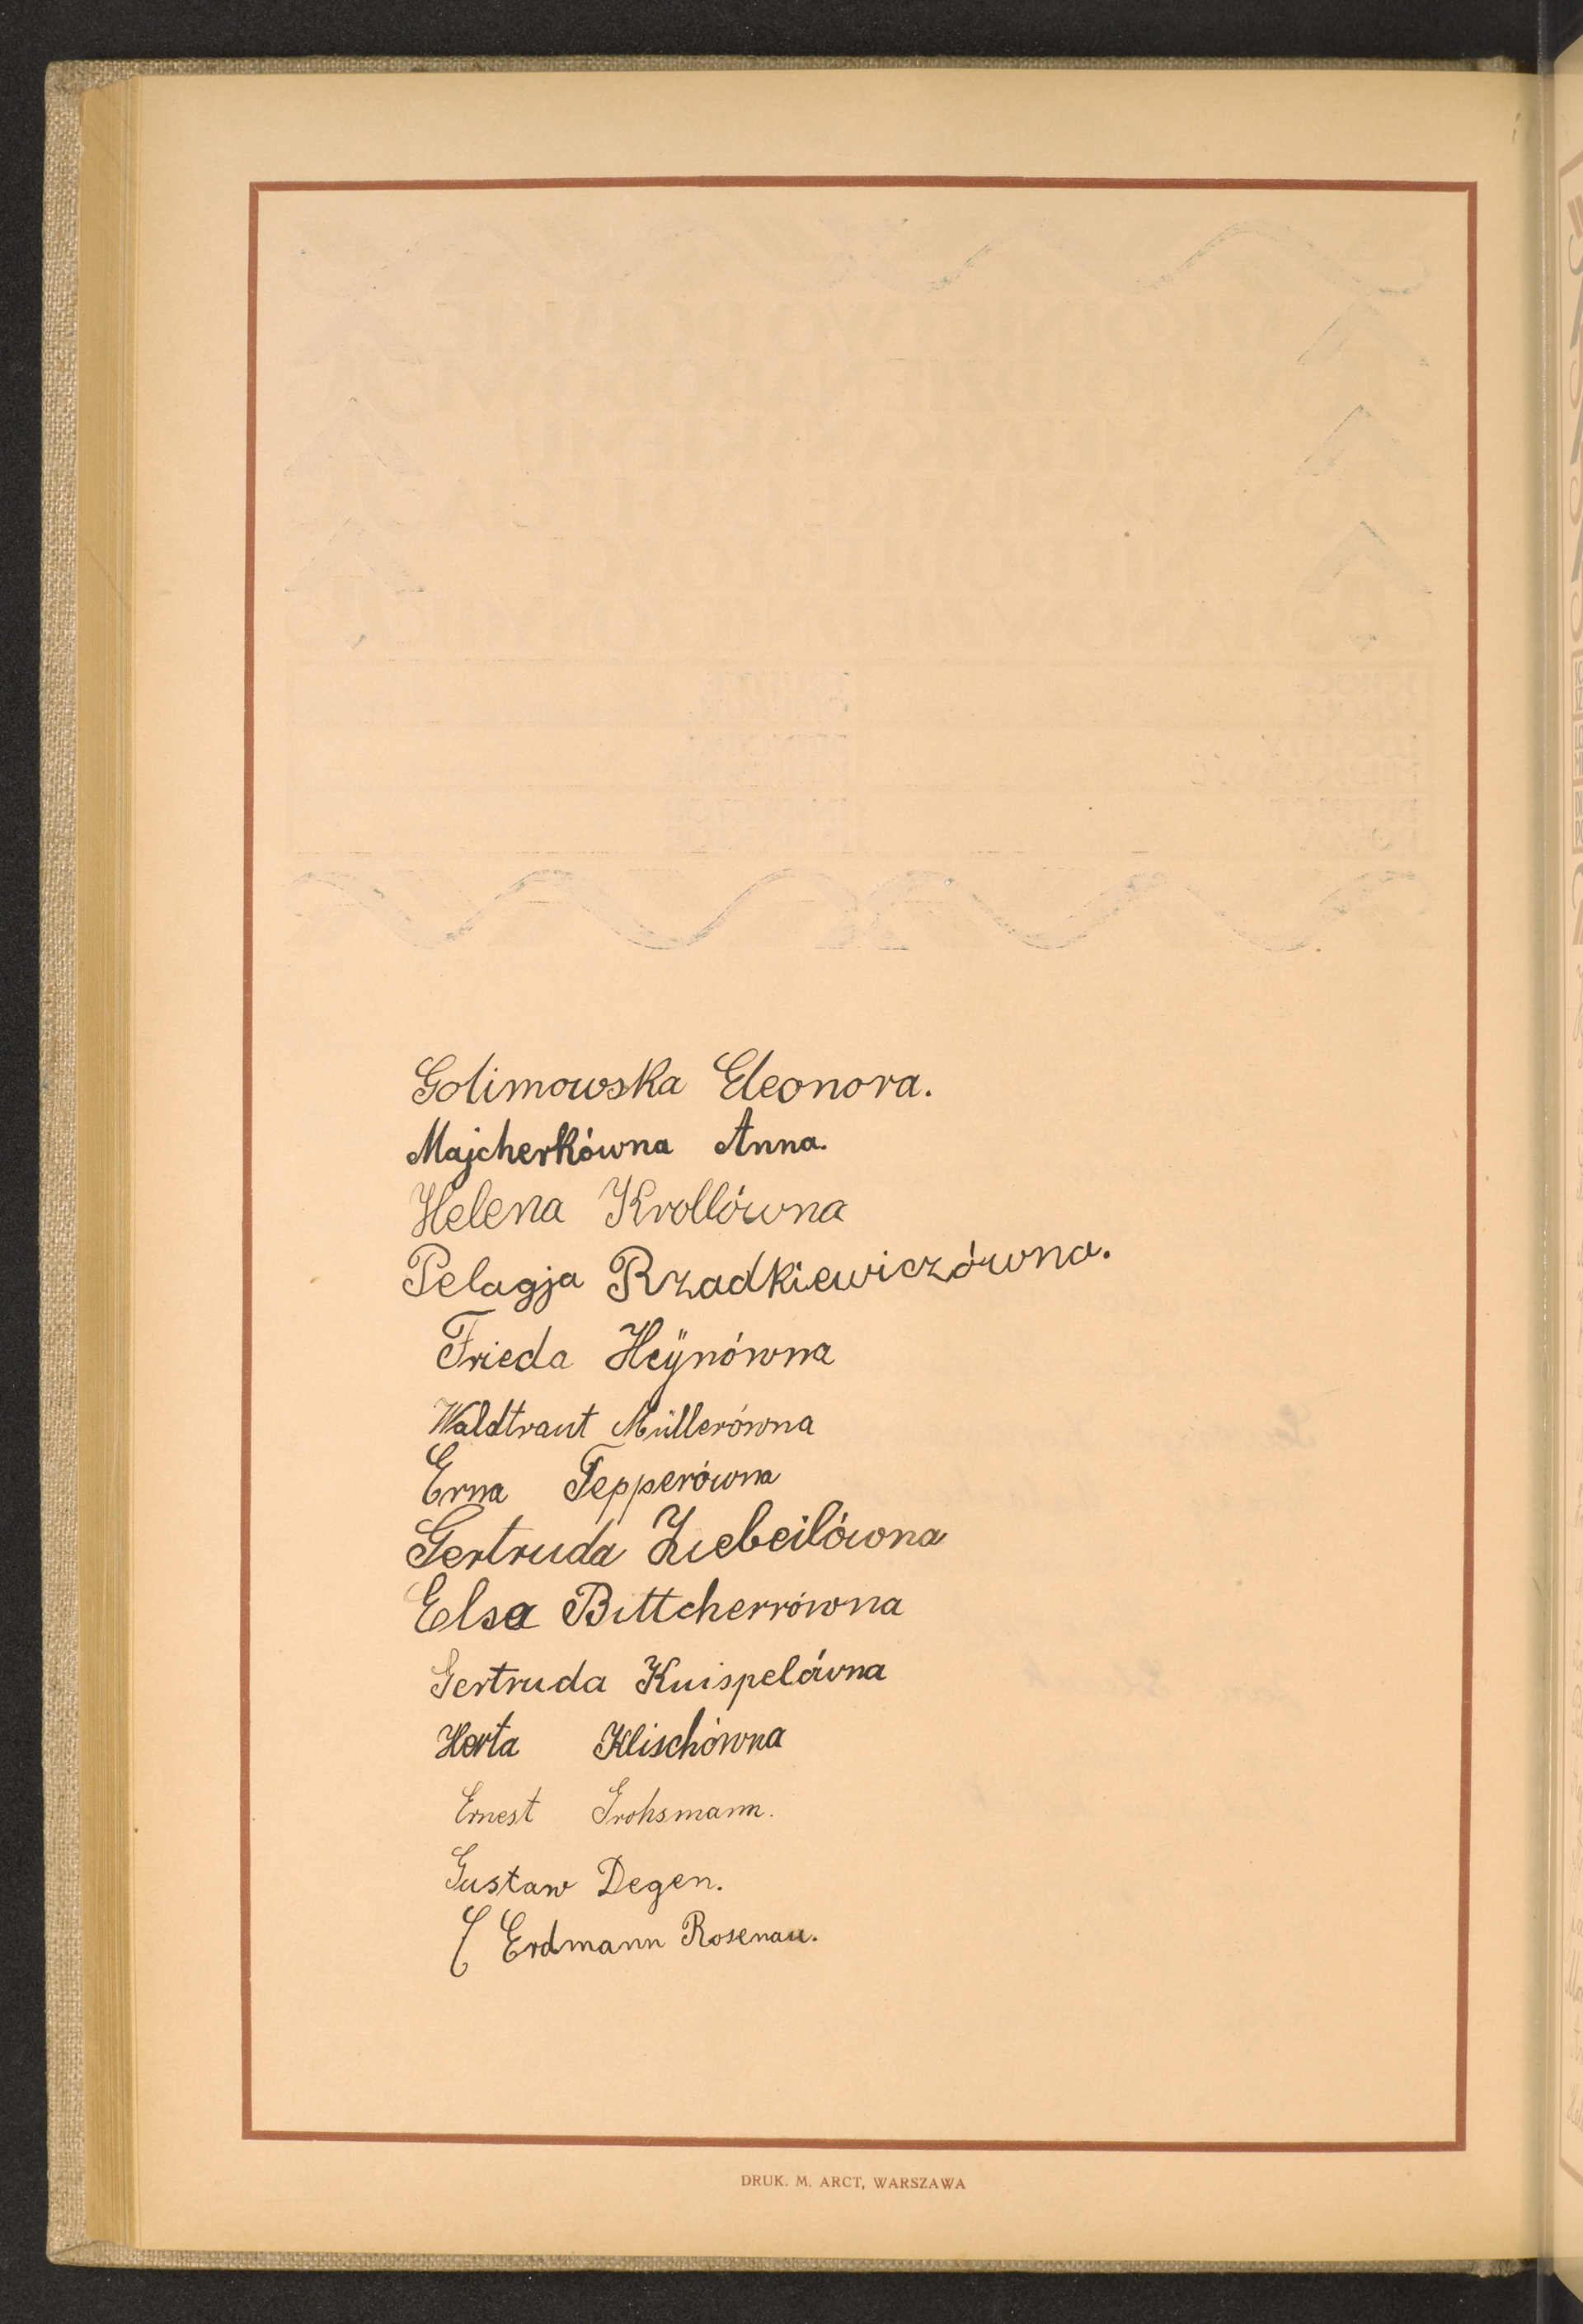 Golimowska Eleonora.
Majcherkówna Anna.
Helena Krollówna
Pelagja Rzadkiewiczówna.
Frieda Heÿnówna
Waldtraut Müllerówna
Erna Tepperówna
Gertruda
Elsa Bittcherrówna
Gertruda Knispelówna
Herta Klischówna
Ernest Grohsmann.
Gustaw Degen.
Erdmann Rosenau.
DRUK. M. ARCT, WARSZAWA